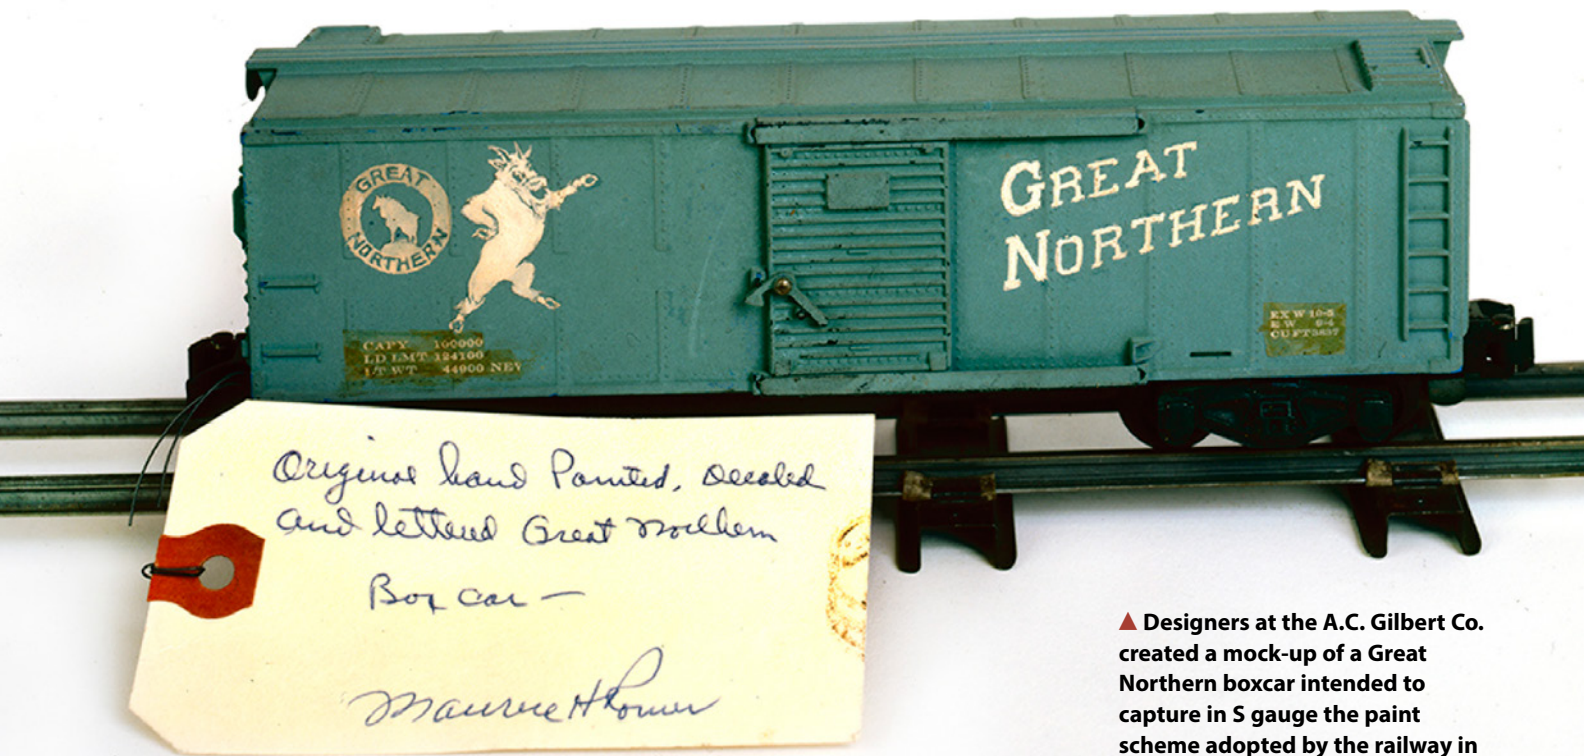 GREAT
NORTHERN
GREAT
NORTHERN
CAPY 100000
LD LMT 124100
LT WT 44900 NEW
EX W 10-3
E W 9-4
CU FT 3837
Original hand Painted, decaled
and lettered Great Northern
Box car —
Maurice H Romer
▲ Designers at the A.C. Gilbert Co.
created a mock-up of a Great
Northern boxcar intended to
capture in S gauge the paint
scheme adopted by the railway in